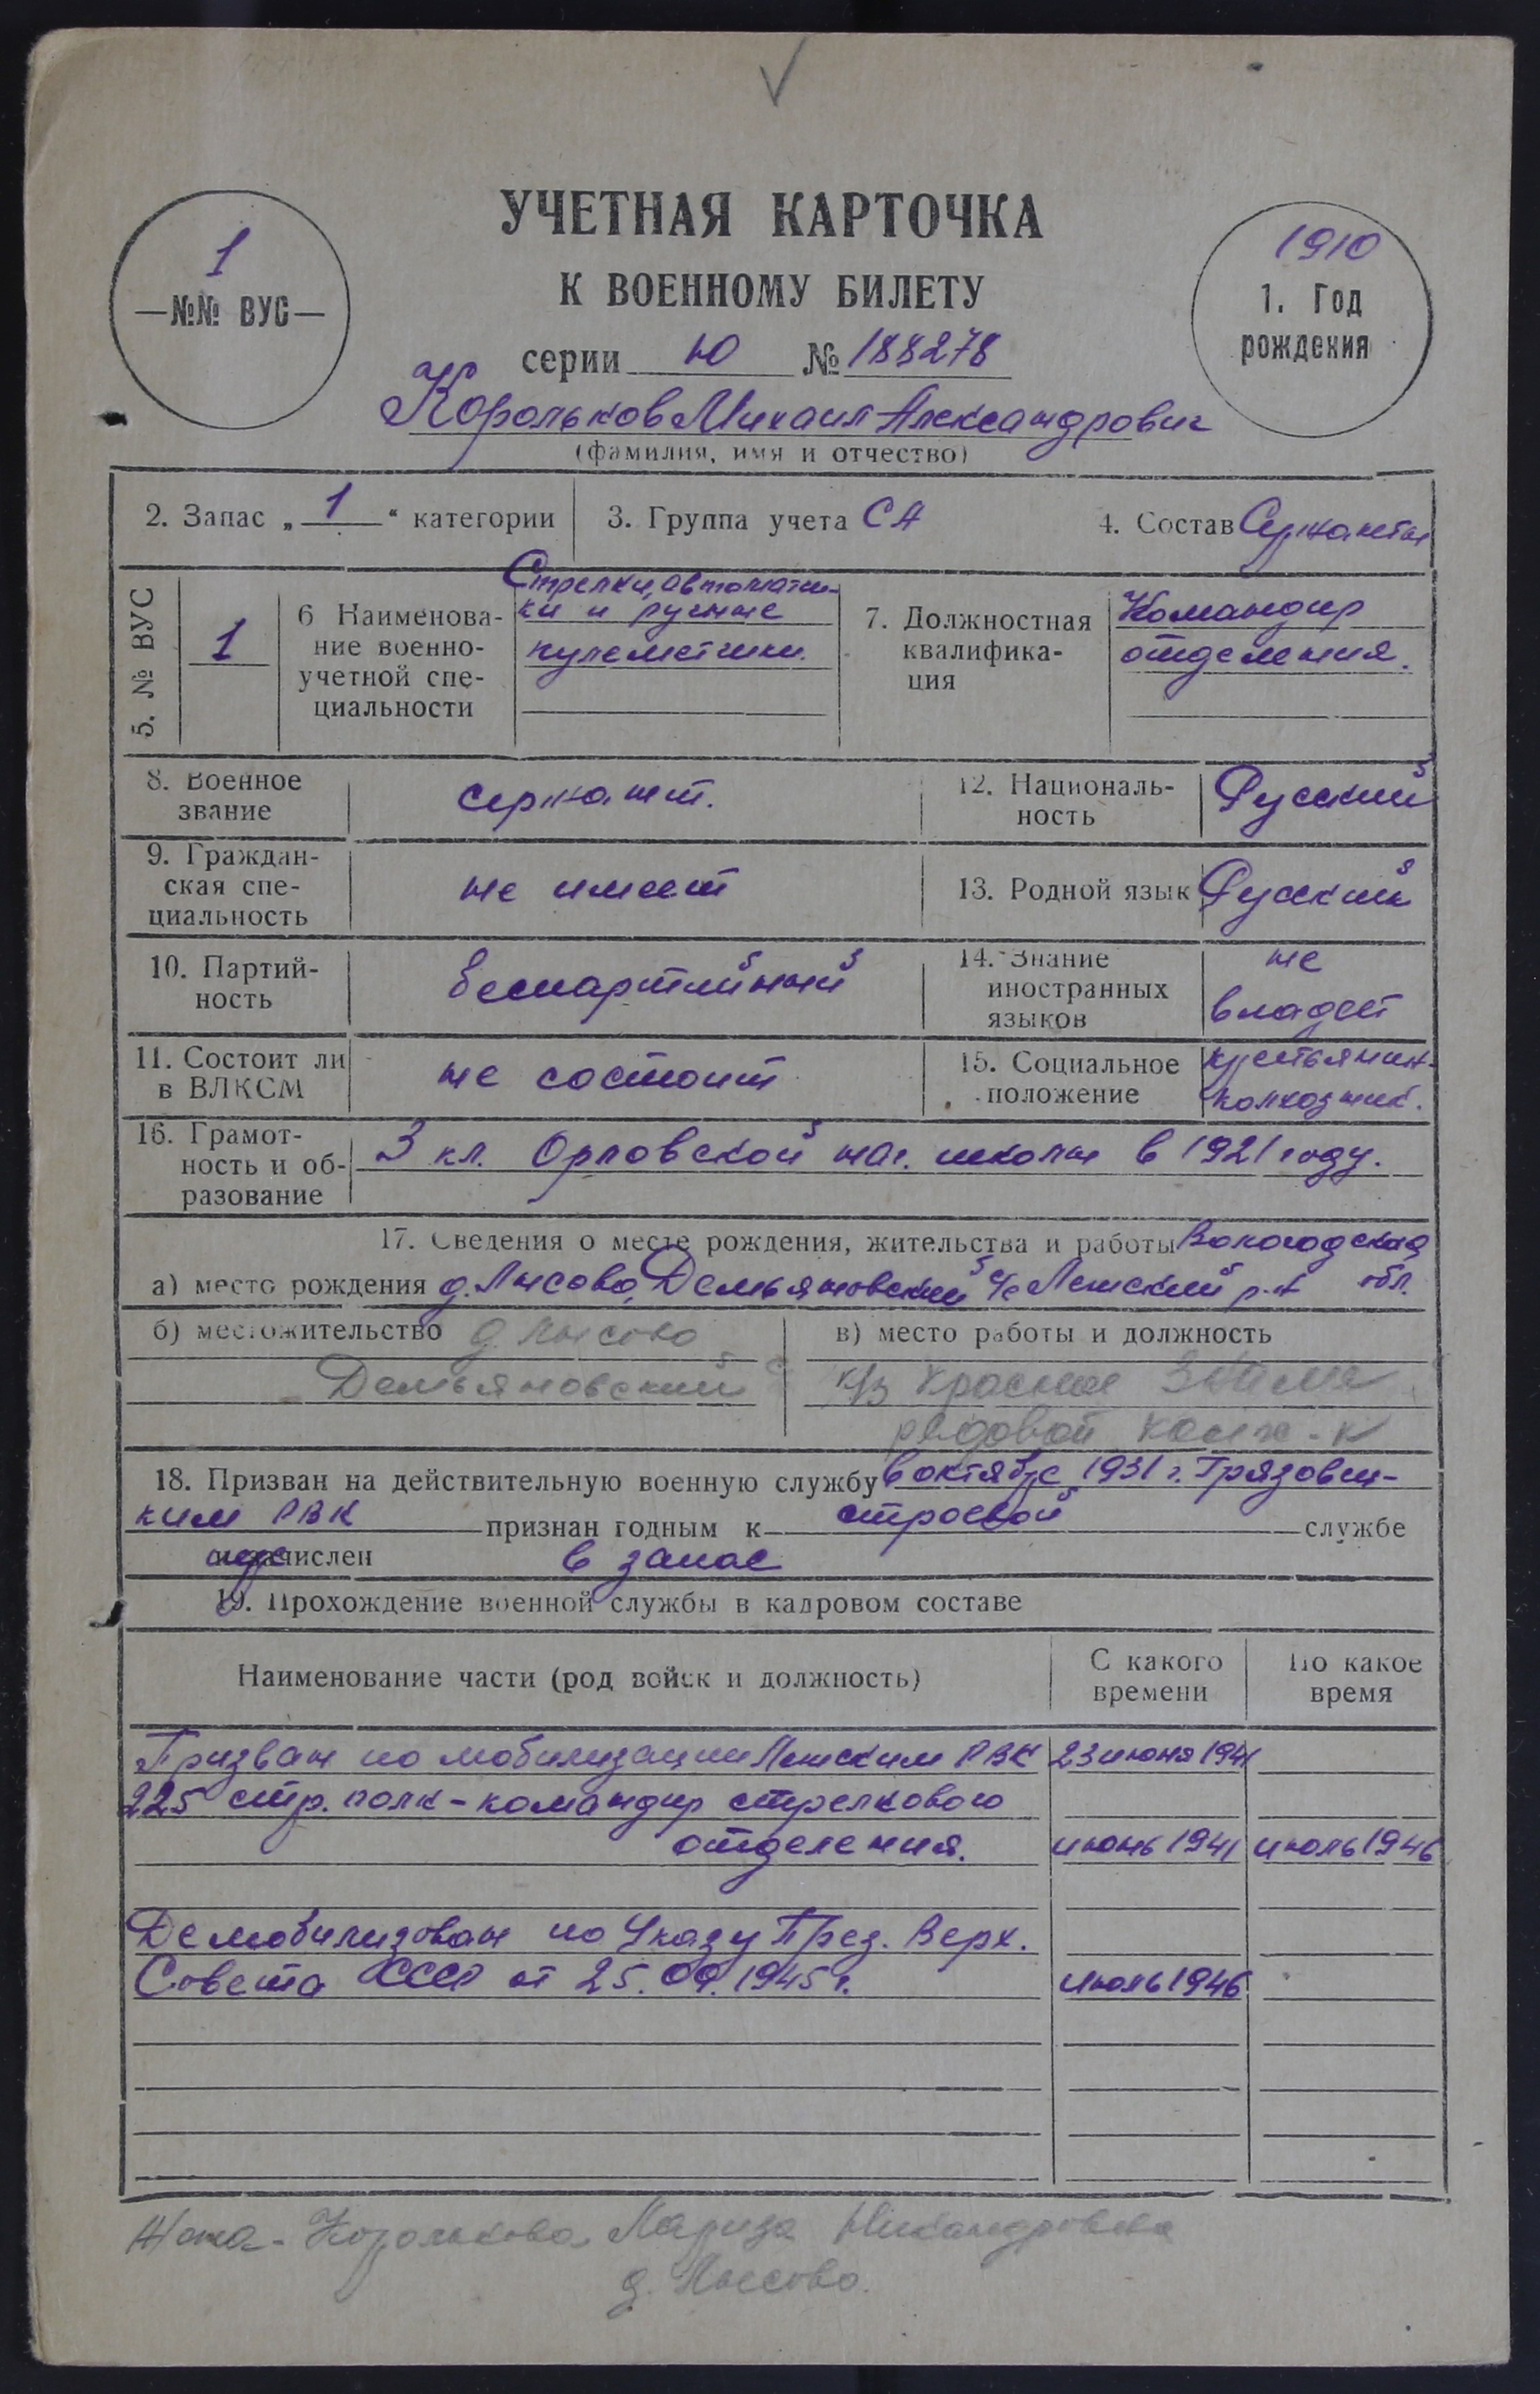 УЧЕТНАЯ КАРТОЧКА
К ВОЕННОМУ БИЛЕТУ
1
—№№ ВУС—
1910
1. Год
рождения
серии Ю № 188278
Корольков Михаил Александрович
(фамилия, имя и отчество)
2. Запас „ 1 “ категории
3. Группа учета СА
4. Состав Сержанты
5. № ВУС
1
6 Наименова-
ние военно-
учетной спе-
циальности
Стрелки, автоматчи-
ки и ручные
пулеметчики.
7. Должностная
квалифика-
ция
Командир
отделения.
8. Военное
звание
сержант.
12. Националь-
ность
Русский
9. Граждан-
ская спе-
циальность
не имеет
13. Родной язык Русский
10. Партий-
ность
беспартийный
14. Знание
иностранных
языков
не
владеет
11. Состоит ли
в ВЛКСМ
не состоит
15. Социальное
положение
крестьянин-
колхозник.
16. Грамот-
ность и об-
разование
3 кл. Орловской нач. школы в 1921 году.
17. Сведения о месте рождения, жительства и работы Вологодская
а) место рождения д. Лысово, Демьяновский с/с Лежский р-н обл.
б) местожительство д Лысово
Демьяновский с
в) место работы и должность
к/з Красное Знамя
рядовой колх-к
18. Призван на действительную военную службу в октябре 1931 г. Грязовец-
ким РВК признан годным к строевой службе
и зачислен в запас
19. Прохождение военной службы в кадровом составе
Наименование части (род войск и должность)
С какого
времени
По какое
время
Призван по мобилизации Лежским РВК 23 июня 1941
225 стр. полк - командир стрелкового
отделения. июнь 1941 июль 1946
Демобилизован по Указу През. Верх.
Совета СССР от 25.09.1945 г. июль 1946
Жена - Королькова Лариза Никандровна
д. Лысово.